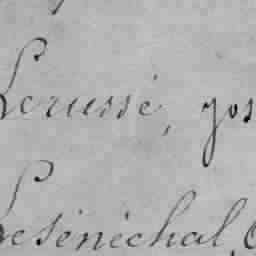 Lerussé, gos
Lesénéchal,